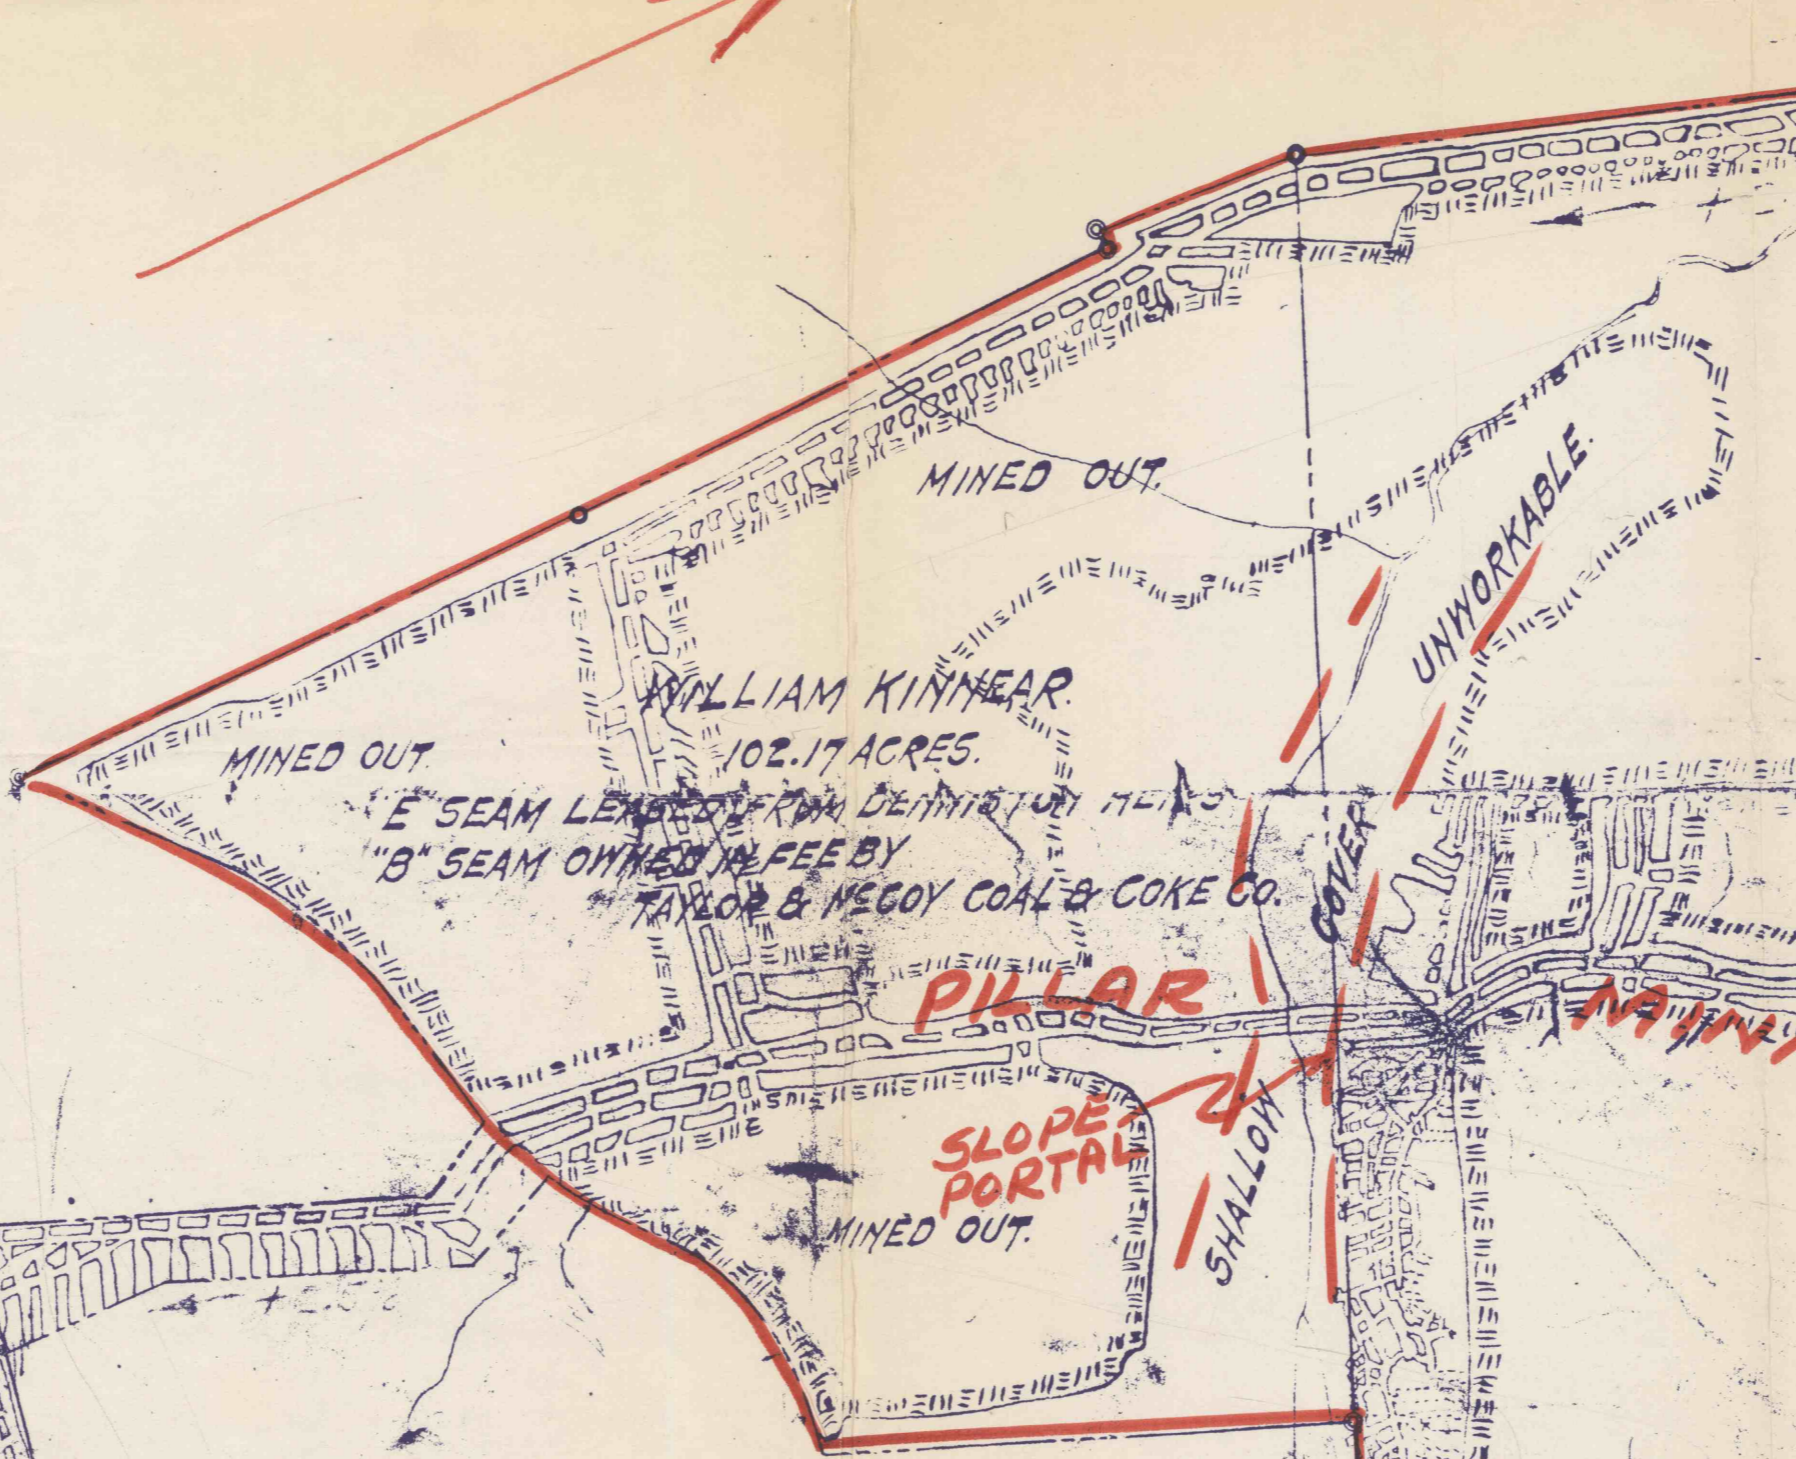 MINED OUT.
UNWORKABLE.
WILLIAM KINNEAR.
102.17 ACRES.
MINED OUT.
"E" SEAM LEASED FROM DENNISTON HEIRS
"B" SEAM OWNED IN FEE BY
TAYLOR & McCOY COAL & COKE CO.
COVER
PILLAR
SLOPE
PORTAL
SHALLOW
MINED OUT.